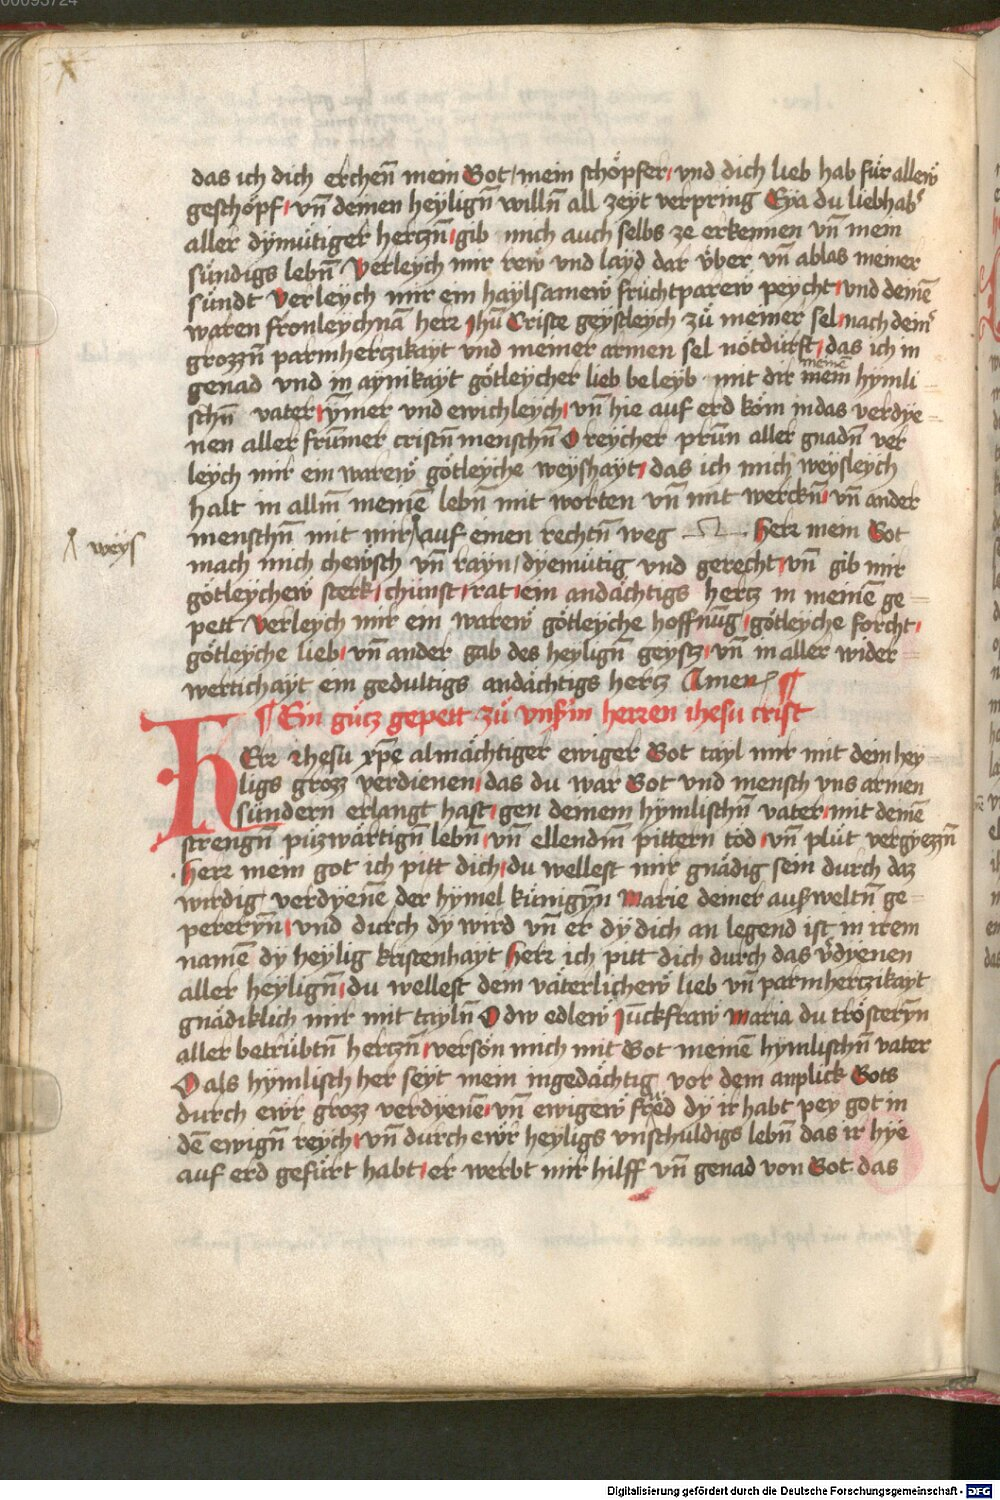 00095724
das ich dich erchen̄ mein Got / mein schöpfer / vnd dich lieb hab für allew̄
geschöpf / vn̄ deinen heylign̄ willn̄ all zeyt verpring Eya du liebhab̕
aller dÿmütiger herczn̄ / gib mich auch selbs ze erkennen vn̄ mein
sündigs lebn̄ Verleych mir rew vnd layd dar über vn̄ ablas meiner
sündt Verleych mir ein haylsamew̄ früchtparew peycht / vnd deinē
waren fronleychnā herr Jhū Criste geystleych zü meiner sel / nach dein̕
grozzn̄ parmherczikayt vnd meiner armen sel nötdurft / das ich in
genad vnd in aynikayt götleycher lieb beleyb mit dir mein hymli
meinē
schn̄ vater / ÿmer vnd ewichleych / vn̄ hie auf erd köm in das verdye
nen aller frūmer cristn̄ menschn̄ O reycher prūn aller gnadn̄ ver
leych mir ein warew̄ götleyche weyshayt / das ich mich weysleych
halt in allm̄ meinē lebn̄ mit worten vn̄ mit werckn̄ / vn̄ ander
menschn̄ mit mir auf einen rechtn̄ weg Herr mein Got
weys
mach mich chewsch vn̄ rayn / dyemütig vnd gerecht / vn̄ gib mir
götleychew̄ sterk / chünst / rat / ein andächtigs hercz in meinē ge
pett Verleych mir ein warew̄ götleyche hoffnūg / götleyche forcht /
götleyche lieb / vn̄ ander gab des heylign̄ geystz / vn̄ in aller wider
wertichayt ein gedultigs andächtigs hercz Amen
¶ Ein gücz gepett zü vnserm herren ihesu crist ¶
HErr ihesu xp̄e almächtiger ewiger Got tayl mir mit dein hey
ligs grozz verdienen / das du war Got vnd mensch vns armen
sündern erlangt hast / gen deinem hymlischn̄ vater / mit deinē
strengn̄ püzwärtign̄ lebn̄ / vn̄ ellendm̄ pittern tod / vn̄ plüt vergyezzn̄
Herr mein got ich pitt dich / du wellest mir gnädig sein durch daz
wirdig verdyenē der hymel künigyn̄ Marie deiner außweltn̄ ge
pereryn̄ / vnd durch dÿ wird vn̄ er dÿ dich an legend ist in irem
namē dÿ heylig kristenhayt Herr ich pitt dich durch das v̕dyenen
aller heylign̄ / du wellest dein väterlichew̄ lieb vn̄ parmherczikayt
gnädiklich mir mit tayln̄ O dw edlew̄ Jūckfraw Maria du trösteryn
aller betrübtn̄ herczn̄ / versön mich mit Got meinē hymlischn̄ vater
O als hymlisch her seyt mein ingedächtig vor dem anplick Gots
durch ewr grozz verdyenē / vn̄ ewigew̄ fräed dÿ ir habt pey got in
dē ewign̄ reych / vn̄ durch ewr heyligs vnschuldigs lebn̄ das ir hye
auf erd gefürt habt / er werbt mir hilff vn̄ genad von Got das
Digitalisierung gefördert durch die Deutsche Forschungsgemeinschaft - DFG